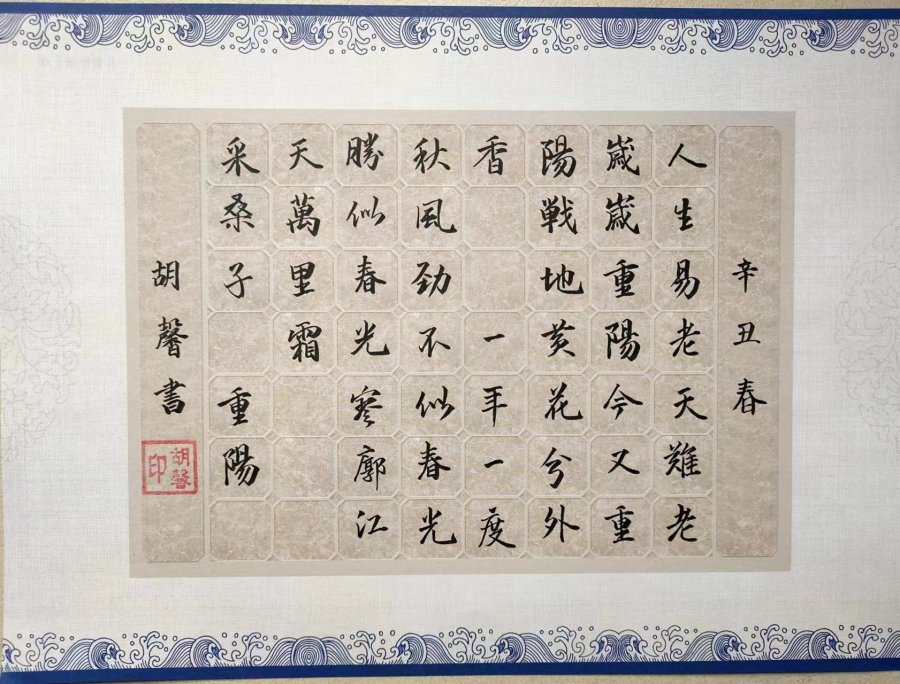 辛丑春
人生易老天難老
嵗嵗重陽今又重
陽戦地黄花分外
香 一年一度
秋風劲不似春光
勝似春光寥廓江
天萬里霜
采桑子 重陽
胡馨書
胡馨印